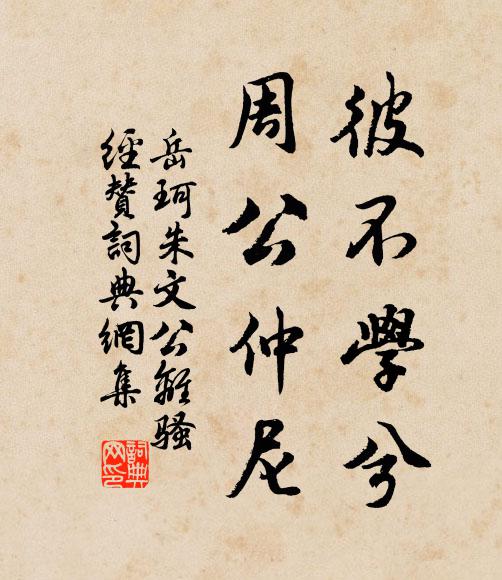 彼不學兮
周公仲尼
岳珂朱文公離騷
經贊詞典網集
詞典
网印